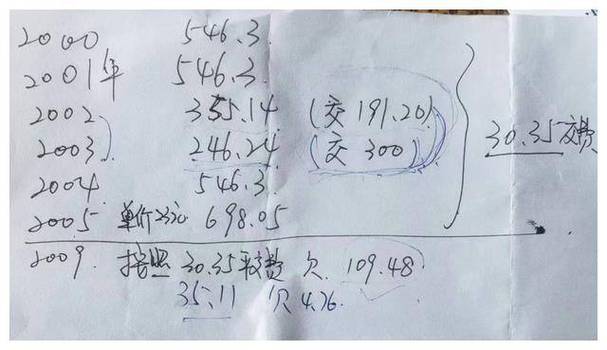 2000 546.3
2001年 546.3
2002 355.14 (交 191.20)
2003 246.24 (交 300) 30.35交费
2004 546.3
2005 单价23元 698.05
2009. 按照 30.35平交费 欠 109.48
35.11 欠 4.76.